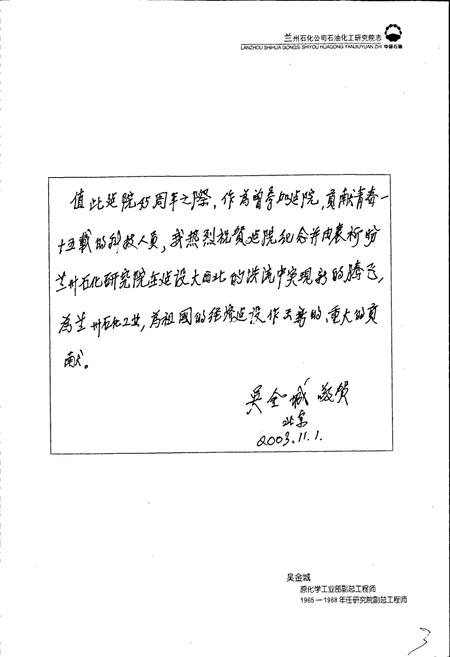 兰州石化公司石油化工研究院志
LANZHOU SHIHUA GONGSI SHIYOU HUAGONG YANJIUYUAN ZHI 中国石油
值此建院45周年之际，作为曾参加建院，贡献青春一
十五载的科技人员，我热烈祝贺建院纪念并由衷祈盼
兰州石化研究院在建设大西北的洪流中实现新的腾飞，
为兰州石化工业，为祖國的经济建设作出新的、重大的贡
献。
吴金城 敬贺
北京
2003.11.1.
吴金城
原化学工业部副总工程师
1965—1968年任研究院副总工程师
3